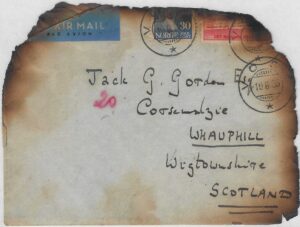 AIR MAIL
PAR AVION
30
NORGE
Jack G. Gordon Esq
20
Corsemalzie
WHAUPHILL
Wigtownshire
SCOTLAND